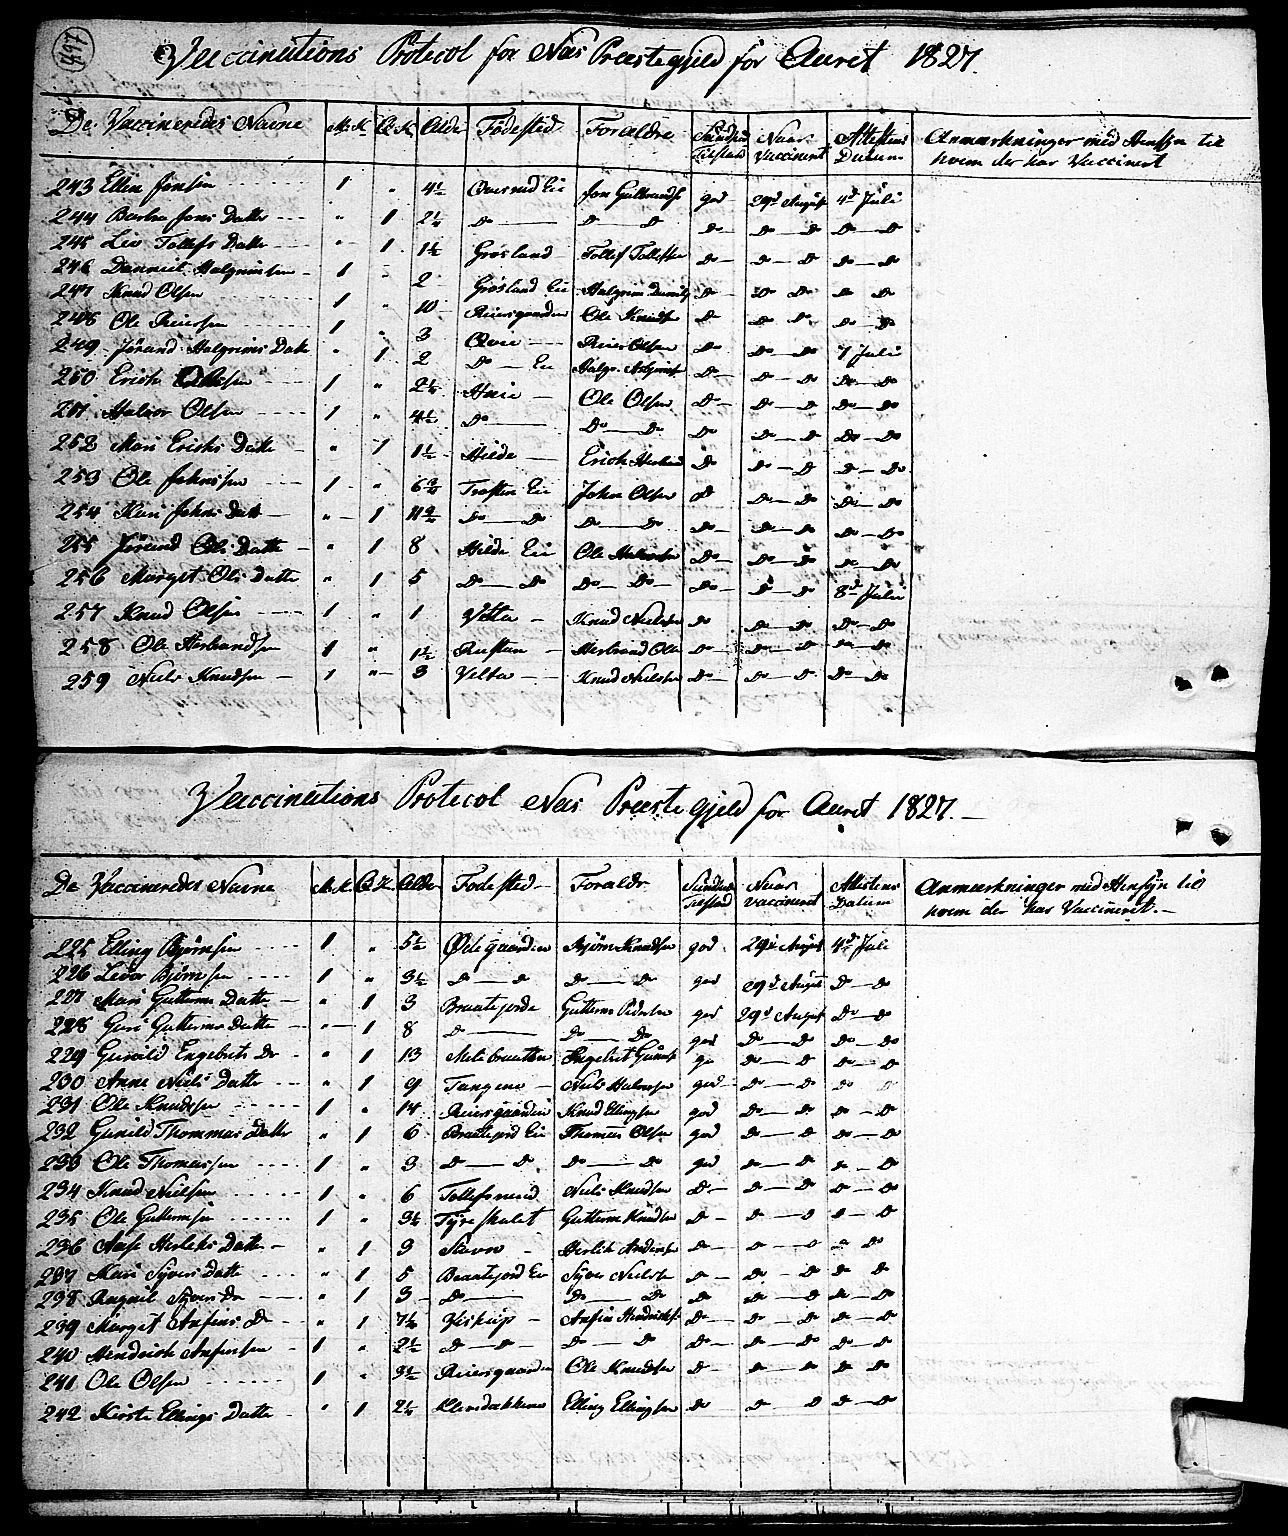 497
Vaccinations Protocol for Næs Præstegjeld for Aaret 1827.
De Vaccineredes Navne M.K. Q.K. Alder Fødested Forældre Sundheds Tilstand Naar Vaccineret Attestens Datum Anmærkninger med Hensyn til hvem der har Vaccineret
243 Ellen Jonsen 1 " 4½ Eie Jon Gulbrands god 29de August 4de Juli
244 Barbra Jons Datter " 1 2¼ Do Do Do Do Do Do Do Do
245 Liv Tollefs Datte " 1 1½ Grøsland Tollef Tollefsen Do Do Do Do Do
246 Halgrimsen 1 " 2 Grøsland Eie Halgrim Do 30 Do Do Do
247 Knud Olsen 1 " 10 Reiersgaarden Ole Knuds Do Do Do Do Do
248 Ole Reiersen 1 " 3 Qvie Reier Olsen Do Do Do 7 Juli
249 Jørand Halgrims Datte " 1 2 Do Eie Halgr. Do Do Do Do Do
250 Erich Olsen 1 " 2½ Haie Ole Olsen Do Do Do Do Do
251 Halvor Olsen 1 " 4½ Do Do Do Do Do Do Do Do
252 Mari Erichs Datte " 1 1½ Hilde Erich Do Do Do Do Do
253 Ole Johnssen 1 " 6¾ Trøsten Eie John Olsen Do Do Do Do Do
254 Kari Johns Datt " 1 Do Do Do Do Do Do Do Do Do
255 Jørand Ols Datte " 1 8 Hilde Eie Ole Do Do Do Do Do
256 Marget Ols Datte " 1 5 Do Do Do Do Do Do Do 8de Julii
257 Knud Olsen 1 " 1 Knud Nielsen Do Do Do Do Do
258 Ole Herbrandsen 1 " 1½ Rustan Herbrand Ole Do Do Do Do Do
259 Niels Knudsen 1 " 3 Velta Knud Nielsen Do Do Do Do Do
Vaccinations Protocol Næs Præste gjeld for Aaret 1827.
De Vaccineredes Navne M.K. Q.K. Alder Fødested Forældr Sundheds Tilstand Naar Vaccineret Attistens Datum Anmærkninger med Hensyn til hvem der har Vaccineret.
225 Elling Bjørnsen 1 " 5½ Ødegaarden Bjørn Knudsen god 29de August 4de Juli
226 Bjørnsen 1 " 3½ Do Do Do Do god 29de August Do Do
227 Mari Guttorms Datte " 1 3 Braatejorde Guttorm Pedersen god 29de August Do Do
228 Guri Guttorms Datte " 1 8 Do Do Do god Do Do Do Do
229 Gunild Engebrets Dr " 1 13 Melsbraatten Engebret go Do Do Do Do
230 Anne Niels Datte " 1 9 Tangene Niels Halvorsen god Do Do Do Do
231 Ole Knudsen 1 " 14 Reiersgaarden Knud Ellingsen god Do Do Do Do
232 Gunild Thommas Datter " 1 6 Braatejord Eie Thomas Olsen god Do Do Do Do
233 Ole Thomassen 1 " 3 Do Do Do Do god Do Do Do Do
234 Knud Nielsen 1 " 6 Tollefsrud Niels Knudsen Do Do Do Do Do
235 Ole Guttormsen 1 " 3½ Guttorm Knudsen Do Do Do Do Do
236 Aase Herleks Datte " 1 3 Stavn Herlik Andersen Do Do Do Do Do
237 Kari Syvers Datte " 1 5 Braatejord Eie Syver Nielsen Do Do Do Do Do
238 Ragnil Syvers Dr " 1 3 Do Do Do Do Do Do Do Do
239 Marget Anfins D " 1 7½ Viskiip Anfin Hendriks Do Do Do Do Do
240 Hendrich Anfinsen 1 " 2½ Do Do Do Do Do Do Do Do Do
241 Ole Olsen 1 " 3½ Reiersgaarden Ole Knudsen Do Do Do Do Do
242 Kirste Ellings Datte " 1 2½ Elling Ellingsen Do Do Do Do Do